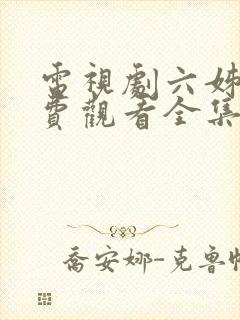 電視劇六姊
費觀看全集
喬安娜-克魯